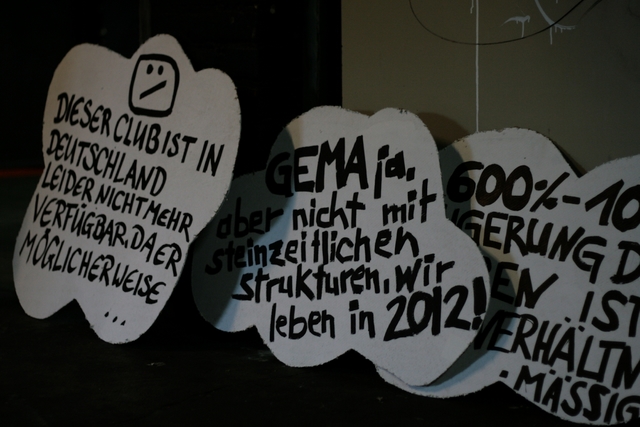 DIESER CLUB IST IN
DEUTSCHLAND
LEIDER NICHT MEHR
VERFÜGBAR, DA ER
MÖGLICHERWEISE
...
GEMA ja,
aber nicht mit
steinzeitlichen
strukturen, wir
leben in 2012!
600%-10
IGERUNG D
EN IST
VERHÄLTN
. MÄSSIG